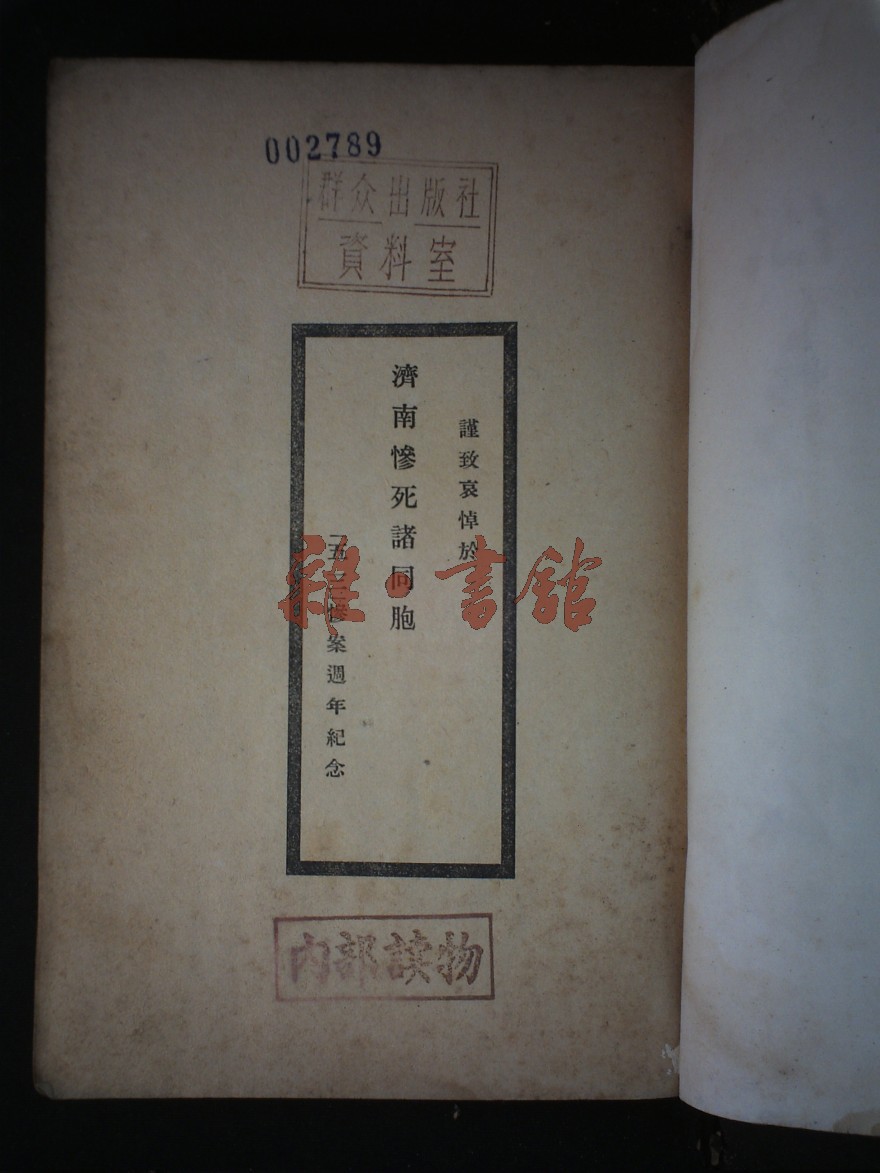 002789
群众出版社
資料室
謹致哀悼於
濟南慘死諸同胞
五三慘案週年紀念
雜·書館
内部读物